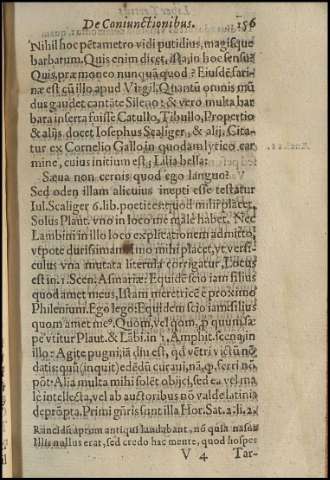 De Coniunctionibus. 156
Nihil hoc pẽtametro vidi putidius, magisque
barbarum. Quis enim dicet, ista, in hoc sensu?
Quis, præ moneo nunquā quod? Eiusdē fari-
næ est cũ illo apud Virgil. Quantũ omnis mũ
dus gaudet cantāte Sileno: & vero multa bar
bara inserta fuisse Catullo, Tibullo, Propertio
& alijs docet Iosephus Scaliger, & alij. Cita-
tur ex Cornelio Gallo in quodam lyrico car
mine, cuius initium est; Lilia bella:
Sæua non cernis quod ego languo?
Sed oden illam alicuius inepti esse testatur
Iul. Scaliger 6. lib. poetices: quod mihi placet.
Solus Plaut. vno in loco me malè habet. Nec
Lambini in illo loco explicationem admitto,
vtpote durissimam: imo mihi placet, vt versi-
culus vna mutata literula corrigatur. Locus
est in 1. Scen. Asinariæ: Equidē scio iam filius
quod amet meus, Istam meretricē è proximo
Philenium. Ego lego: Equidem scio iam filius
quom amet meꝰ. Quom, vel qom, p quum, sæ
pe vtitur Plaut. & Lābi. in 3. Amphit. scena, in
illo: Agite pugni, iā diu est, qd vētri victũ nõ
datis: quũ (inquit) edēdũ curaui, nā, q, ferri nõ
põt. Alia multa mihi solēt obijci, sed ea vel ma
lè intellecta, vel ab auctoribus nõ valde latinis
deprõpta. Primi gñris sunt illa Hor. Sat. 2. li. 2.
Rancidũ aprum antiqui laudabant, nõ quia nasus
Illis nullus erat, sed credo hac mente, quod hospes
V 4 Tar-